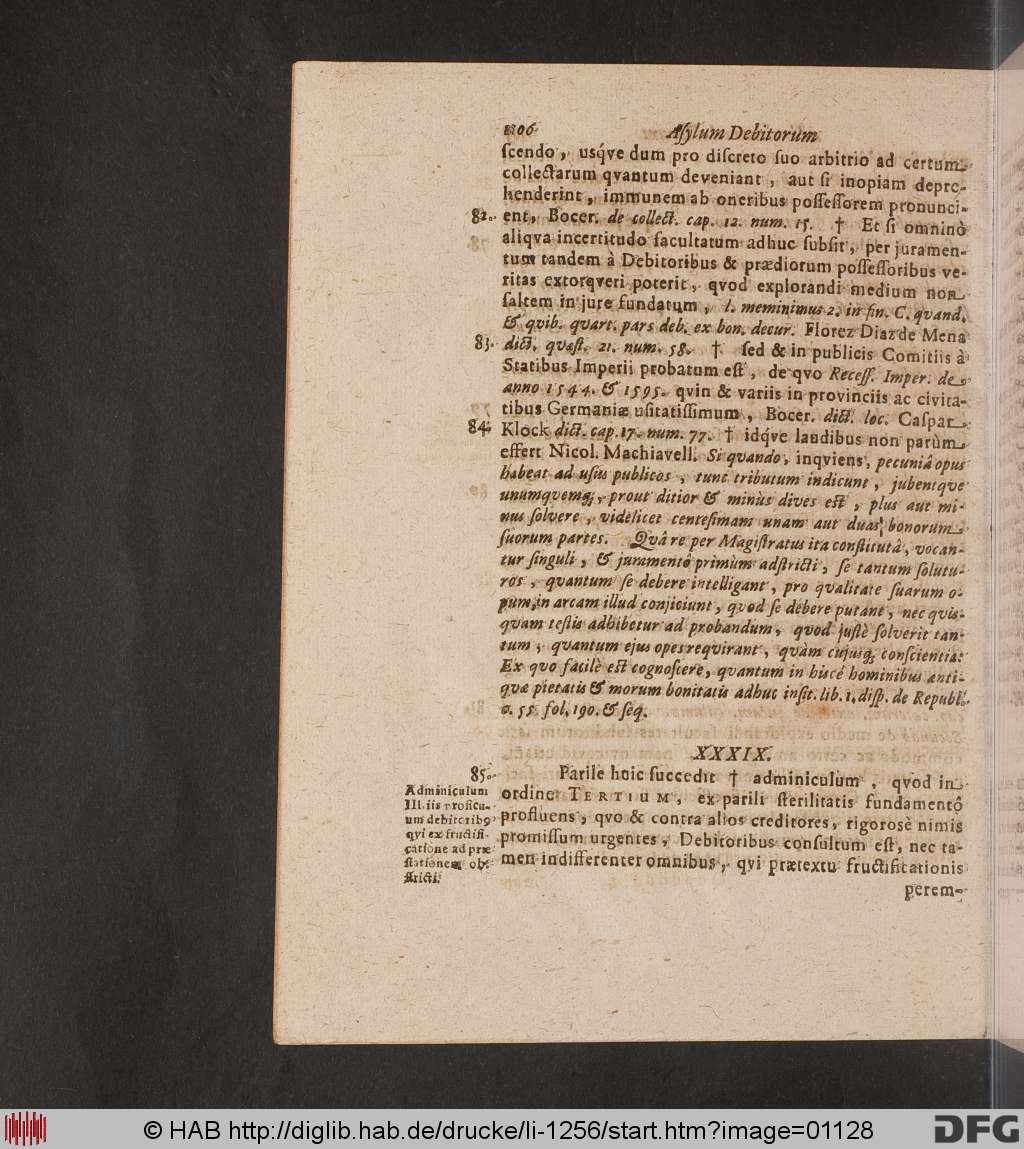 106 Aſylum Debitorum
ſcendo, uſqve dum pro diſcreto ſuo arbitrio ad certum
collectarum qvantum deveniant, aut ſi inopiam depre-
henderint, immunem ab oneribus poſſeſſorem pronunci-
82. ent, Bocer. de collect. cap. 12. num. 15. † Et ſi omninò
aliqva incertitudo facultatum adhuc ſubſit, per juramen-
tum tandem à Debitoribus & prædiorum poſſeſſoribus ve-
ritas extorqveri poterit, qvod explorandi medium non
ſaltem in jure fundatum, l. meminimus 2. in fin. C. qvand.
& qvib. qvart. pars deb. ex bon. decur. Florez Diaz de Mena
83. dict. qvæſt. 21. num. 58. † ſed & in publicis Comitiis à
Statibus Imperii probatum eſt, de qvo Receſſ. Imper. de
anno 1544. & 1595. qvin & variis in provinciis ac civita-
tibus Germaniæ uſitatiſſimum, Bocer. dict. loc. Caſpar
84. Klock dict. cap. 17. num. 77. † idqve laudibus non parùm
effert Nicol. Machiavell. Si qvando, inqviens, pecuniâ opus
habeat ad uſus publicos, tunc tributum indicunt, jubentqve
unumqvemq;, prout ditior & minùs dives eſt, plus aut mi-
nus ſolvere, videlicet centeſimam unam aut duas bonorum
ſuorum partes. Qvâ re per Magiſtratus ita conſtitutâ, vocan-
tur ſinguli, & juramentô primùm adſtricti, ſe tantum ſolutu-
ros, qvantum ſe debere intelligant, pro qvalitate ſuarum o-
pum, in arcam illud conjiciunt, qvod ſe debere putant, nec qvis-
qvam teſtis adhibetur ad probandum, qvod juſtè ſolverit tan-
tum, qvantum ejus opes reqvirant, qvàm cujusq; conſcientia:
Ex qvo facilè eſt cognoſcere, qvantum in hisce hominibus anti-
qvæ pietatis & morum bonitatis adhuc inſit. lib. 1. diſp. de Republ.
c. 55. fol. 190. & ſeq.
XXXIX.
85. Parile huic ſuccedit † adminiculum, qvod in
ordine TERTIUM, ex parili ſterilitatis fundamentô
profluens, qvo & contra alios creditores, rigorosè nimis
promiſſum urgentes, Debitoribus conſultum eſt, nec ta-
men indifferenter omnibus, qvi prætextu fructificationis
perem-
Adminiculum
III. iis proficu-
um debitorib9
qvi ex fructifi-
catione ad præ-
ſtationem ob-
ſtricti.
© HAB http://diglib.hab.de/drucke/li-1256/start.htm?image=01128
DFG